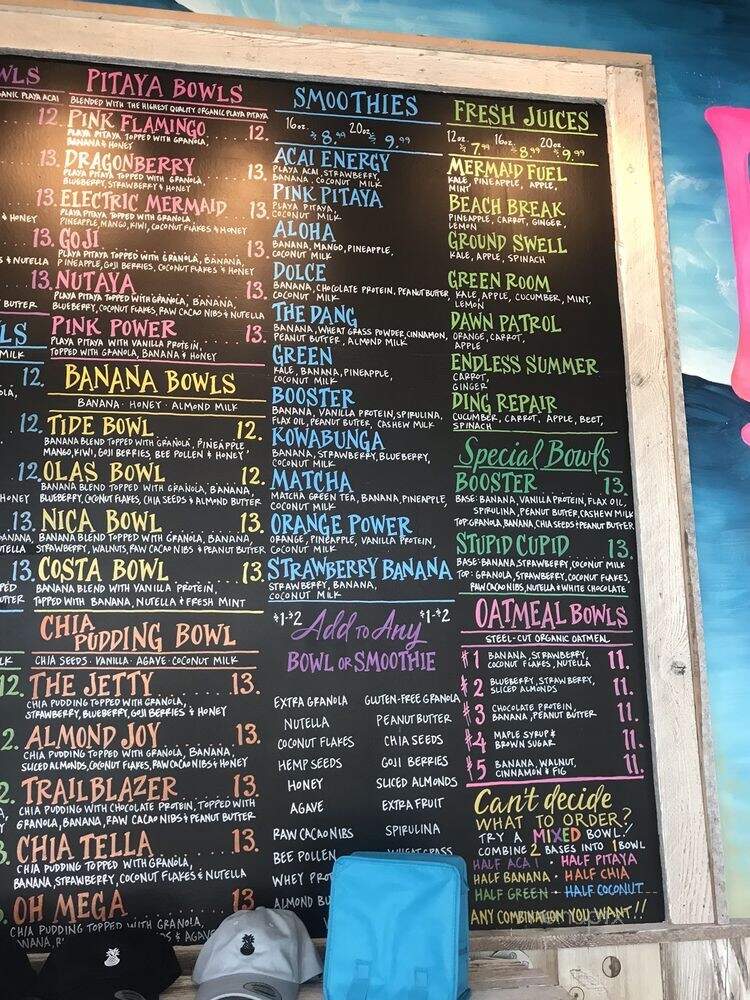 WLS
GANIC PLAYA ACAI
12.
13.
13.
& HONEY
13.
& NUTELLA
13.
BUTTER
LS
MILK
12.
12.
12.
HONEY
13.
TELLA
13.
12.
PITAYA BOWLS
BLENDED WITH THE HIGHEST QUALITY ORGANIC PLAYA PITAYA
PINK FLAMINGO 12.
PLAYA PITAYA TOPPED WITH GRANOLA,
BANANA & HONEY
DRAGONBERRY 13.
PLAYA PITAYA TOPPED WITH GRANOLA,
BLUEBERRY, STRAWBERRY & HONEY
ELECTRIC MERMAID 13.
PLAYA PITAYA TOPPED WITH GRANOLA,
PINEAPPLE, MANGO, KIWI, COCONUT FLAKES & HONEY
GOJI 13.
PLAYA PITAYA TOPPED WITH GRANOLA, BANANA,
PINEAPPLE, GOJI BERRIES, COCONUT FLAKES & HONEY
NUTAYA 13.
PLAYA PITAYA TOPPED WITH GRANOLA, BANANA,
BLUEBERRY, COCONUT FLAKES, RAW CACAO NIBS & NUTELLA
PINK POWER 13.
PLAYA PITAYA WITH VANILLA PROTEIN,
TOPPED WITH GRANOLA, BANANA & HONEY
BANANA BOWLS
BANANA · HONEY · ALMOND MILK
TIDE BOWL 12.
BANANA BLEND TOPPED WITH GRANOLA, PINEAPPLE
MANGO, KIWI, GOJI BERRIES, BEE POLLEN & HONEY
OLAS BOWL 12.
BANANA BLEND TOPPED WITH GRANOLA, BANANA,
BLUEBERRY, COCONUT FLAKES, CHIA SEEDS & ALMOND BUTTER
NICA BOWL 13.
BANANA BLEND TOPPED WITH GRANOLA, BANANA,
STRAWBERRY, WALNUTS, RAW CACAO NIBS & PEANUT BUTTER
COSTA BOWL 13.
BANANA BLEND WITH VANILLA PROTEIN,
TOPPED WITH BANANA, NUTELLA & FRESH MINT
CHIA PUDDING BOWL
CHIA SEEDS · VANILLA · AGAVE · COCONUT MILK
THE JETTY 13.
CHIA PUDDING TOPPED WITH GRANOLA,
STRAWBERRY, BLUEBERRY, GOJI BERRIES & HONEY
ALMOND JOY 13.
CHIA PUDDING TOPPED WITH GRANOLA, BANANA,
SLICED ALMONDS, COCONUT FLAKES, RAW CACAO NIBS & HONEY
TRAILBLAZER 13.
CHIA PUDDING WITH CHOCOLATE PROTEIN, TOPPED WITH
GRANOLA, BANANA, RAW CACAO NIBS & PEANUT BUTTER
CHIA TELLA 13.
CHIA PUDDING TOPPED WITH GRANOLA,
BANANA, STRAWBERRY, COCONUT FLAKES & NUTELLA
OH MEGA 13.
CHIA PUDDING TOPPED WITH GRANOLA,
& AGAVE
SMOOTHIES
16oz. $8.99 20oz. $9.99
ACAI ENERGY
PLAYA ACAI, STRAWBERRY,
BANANA, COCONUT MILK
PINK PITAYA
PLAYA PITAYA,
COCONUT MILK
ALOHA
BANANA, MANGO, PINEAPPLE,
COCONUT MILK
DOLCE
BANANA, CHOCOLATE PROTEIN, PEANUT BUTTER,
COCONUT MILK
THE DANG
BANANA, WHEAT GRASS POWDER, CINNAMON,
PEANUT BUTTER, ALMOND MILK
GREEN
KALE, BANANA, PINEAPPLE,
COCONUT MILK
BOOSTER
BANANA, VANILLA PROTEIN, SPIRULINA,
FLAX OIL, PEANUT BUTTER, CASHEW MILK
KOWABUNGA
BANANA, STRAWBERRY, BLUEBERRY,
COCONUT MILK
MATCHA
MATCHA GREEN TEA, BANANA, PINEAPPLE,
COCONUT MILK
ORANGE POWER
ORANGE, PINEAPPLE, VANILLA PROTEIN,
COCONUT MILK
STRAWBERRY BANANA
STRAWBERRY, BANANA,
COCONUT MILK
$1-$2 Add To Any $1-$2
BOWL OR SMOOTHIE
EXTRA GRANOLA GLUTEN-FREE GRANOLA
NUTELLA PEANUT BUTTER
COCONUT FLAKES CHIA SEEDS
HEMP SEEDS GOJI BERRIES
HONEY SLICED ALMONDS
AGAVE EXTRA FRUIT
RAW CACAO NIBS SPIRULINA
BEE POLLEN WHEATGRASS
WHEY
ALMOND
FRESH JUICES
12oz. $7.99 16oz. $8.99 20oz. $9.99
MERMAID FUEL
KALE, PINEAPPLE, APPLE,
MINT
BEACH BREAK
PINEAPPLE, CARROT, GINGER,
LEMON
GROUND SWELL
KALE, APPLE, SPINACH
GREEN ROOM
KALE, APPLE, CUCUMBER, MINT,
LEMON
DAWN PATROL
ORANGE, CARROT,
APPLE
ENDLESS SUMMER
CARROT,
GINGER
DING REPAIR
CUCUMBER, CARROT, APPLE, BEET,
SPINACH
Special Bowls
BOOSTER 13.
BASE: BANANA, VANILLA PROTEIN, FLAX OIL,
SPIRULINA, PEANUT BUTTER, CASHEW MILK
TOP: GRANOLA, BANANA, CHIA SEEDS & PEANUT BUTTER
STUPID CUPID 13.
BASE: BANANA, STRAWBERRY, COCONUT MILK
TOP: GRANOLA, STRAWBERRY, COCONUT FLAKES,
RAW CACAO NIBS, NUTELLA & WHITE CHOCOLATE
OATMEAL BOWLS
STEEL-CUT ORGANIC OATMEAL
#1 BANANA, STRAWBERRY,
COCONUT FLAKES, NUTELLA 11.
#2 BLUEBERRY, STRAWBERRY,
SLICED ALMONDS 11.
#3 CHOCOLATE PROTEIN,
BANANA, PEANUT BUTTER 11.
#4 MAPLE SYRUP &
BROWN SUGAR 11.
#5 BANANA, WALNUT,
CINNAMON & FIG 11.
Can't decide
WHAT TO ORDER?
TRY A MIXED BOWL!
COMBINE 2 BASES INTO 1 BOWL
HALF ACAI · HALF PITAYA
HALF BANANA · HALF CHIA
HALF GREEN · HALF COCONUT
ANY COMBINATION YOU WANT!!